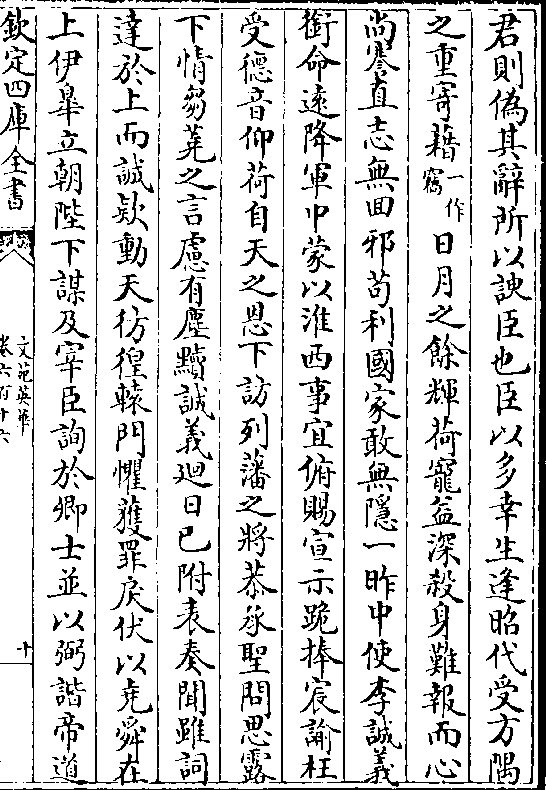 君則偽其辭所以諛臣也臣以多幸生逢昭代受方隅
之重寄藉一作竊日月之餘輝荷寵益深殺身難報而心
尚謇直志無回邪苟利國家敢無隱一昨中使李誠義
銜命遠降軍中蒙以淮西事宜俯賜宣示跪捧宸諭枉
受德音仰荷自天之恩下訪列藩之將恭承聖問思露
下情芻蕘之言慮有塵黷誠義廻日已附表奏聞雖詞
達於上而誠欵動天彷徨轅門懼獲罪戾伏以堯舜在
上伊臯立朝陛下謀及宰臣詢於卿士並以弼諧帝道
欽定四庫全書
文苑英華
卷六百十六
十